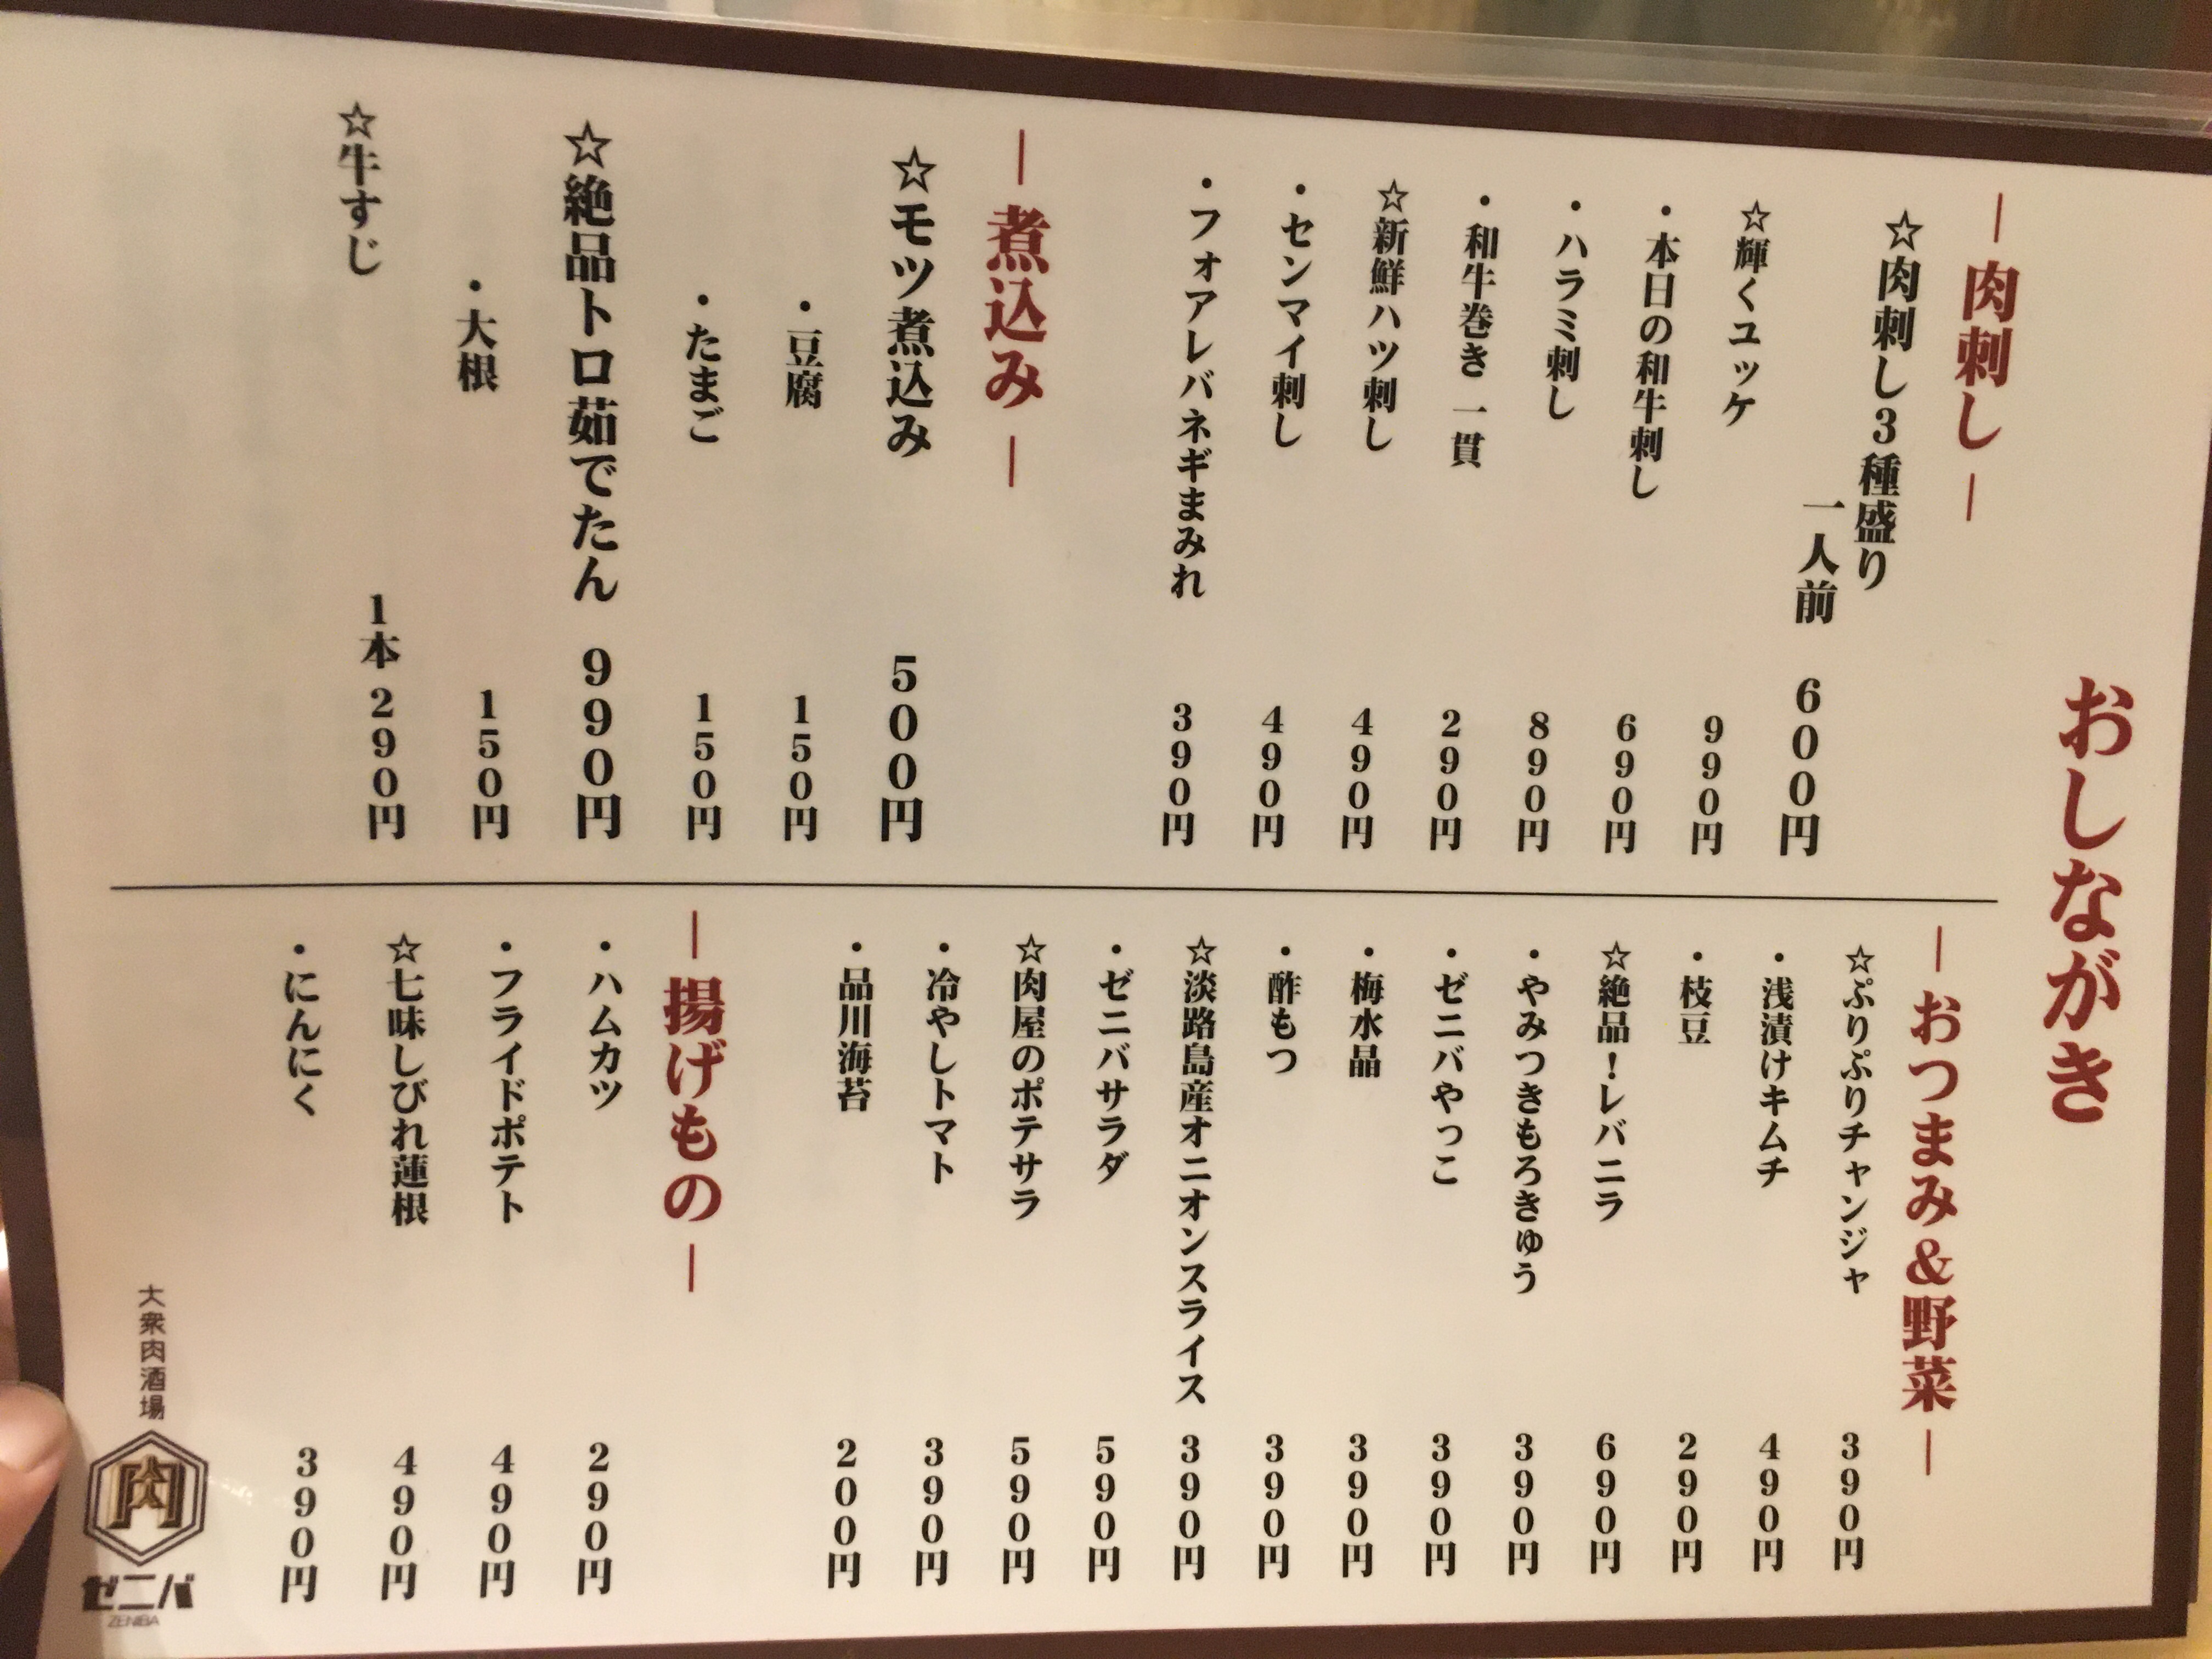 おしながき
― 肉刺し ―
☆肉刺し3種盛り
一人前 600円
☆輝くユッケ 990円
・本日の和牛刺し 690円
・ハラミ刺し 890円
・和牛巻き 一貫 290円
☆新鮮ハツ刺し 490円
・センマイ刺し 490円
・フォアレバネギまみれ 390円
― 煮込み ―
☆モツ煮込み 500円
・豆腐 150円
・たまご 150円
☆絶品トロ茹でたん 990円
・大根 150円
☆牛すじ 1本 290円
― おつまみ&野菜 ―
☆ぷりぷりチャンジャ 390円
・浅漬けキムチ 490円
・枝豆 290円
☆絶品！レバニラ 690円
・やみつきもろきゅう 390円
・ゼニバやっこ 390円
・梅水晶 390円
・酢もつ 390円
☆淡路島産オニオンスライス 390円
・ゼニバサラダ 590円
☆肉屋のポテサラ 590円
・冷やしトマト 390円
・品川海苔 200円
― 揚げもの ―
・ハムカツ 290円
・フライドポテト 490円
☆七味しびれ蓮根 490円
・にんにく 390円
大衆肉酒場
肉
ゼニバ
ZENIBA